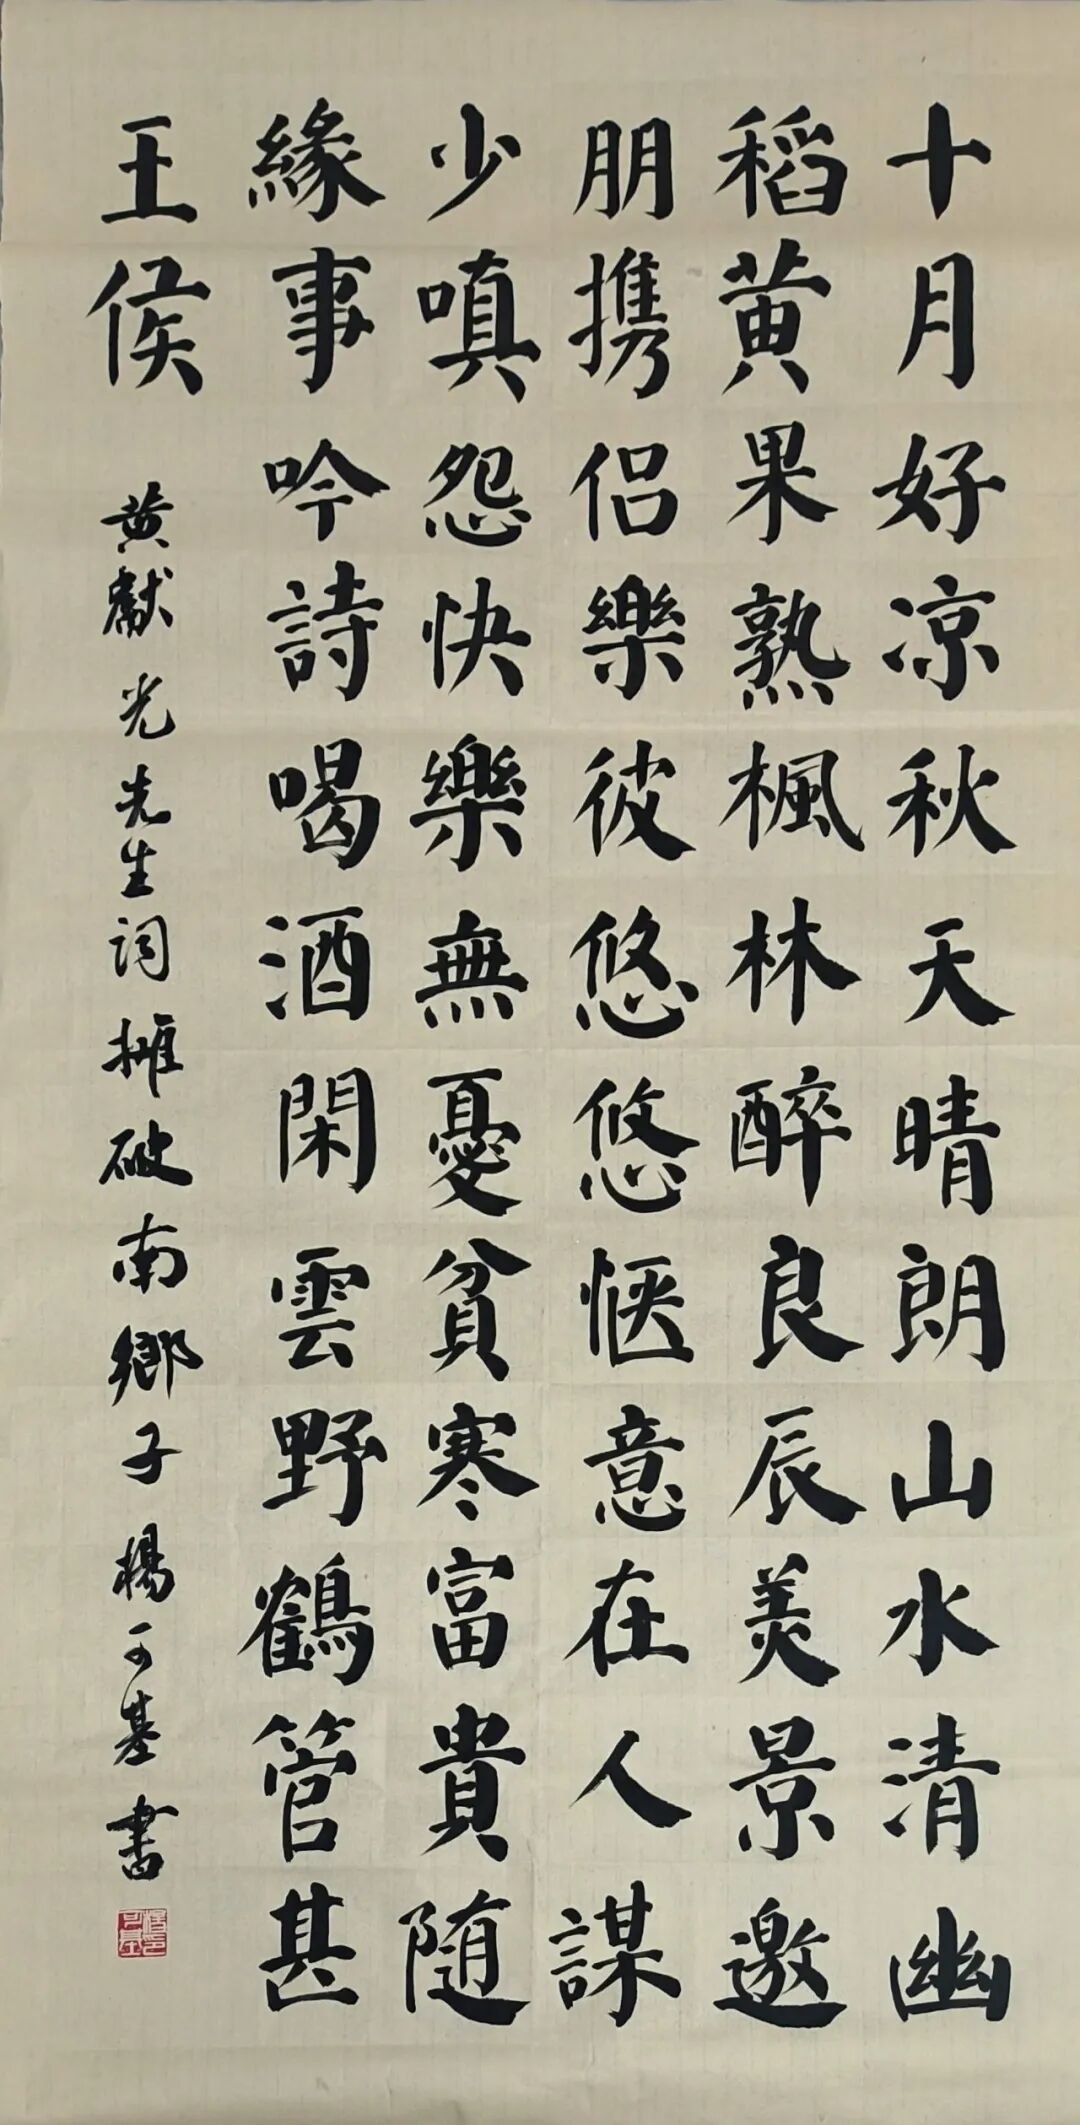 十月好凉秋天晴朗山水清幽
稻黄果熟楓林醉良辰美景邀
朋携侣樂彼悠悠惬意在人謀
少嗔怨快樂無憂貧寒富貴随
緣事吟詩喝酒閑雲野鶴管甚
王侯
黄獻光先生詞摊破南鄉子楊可基書